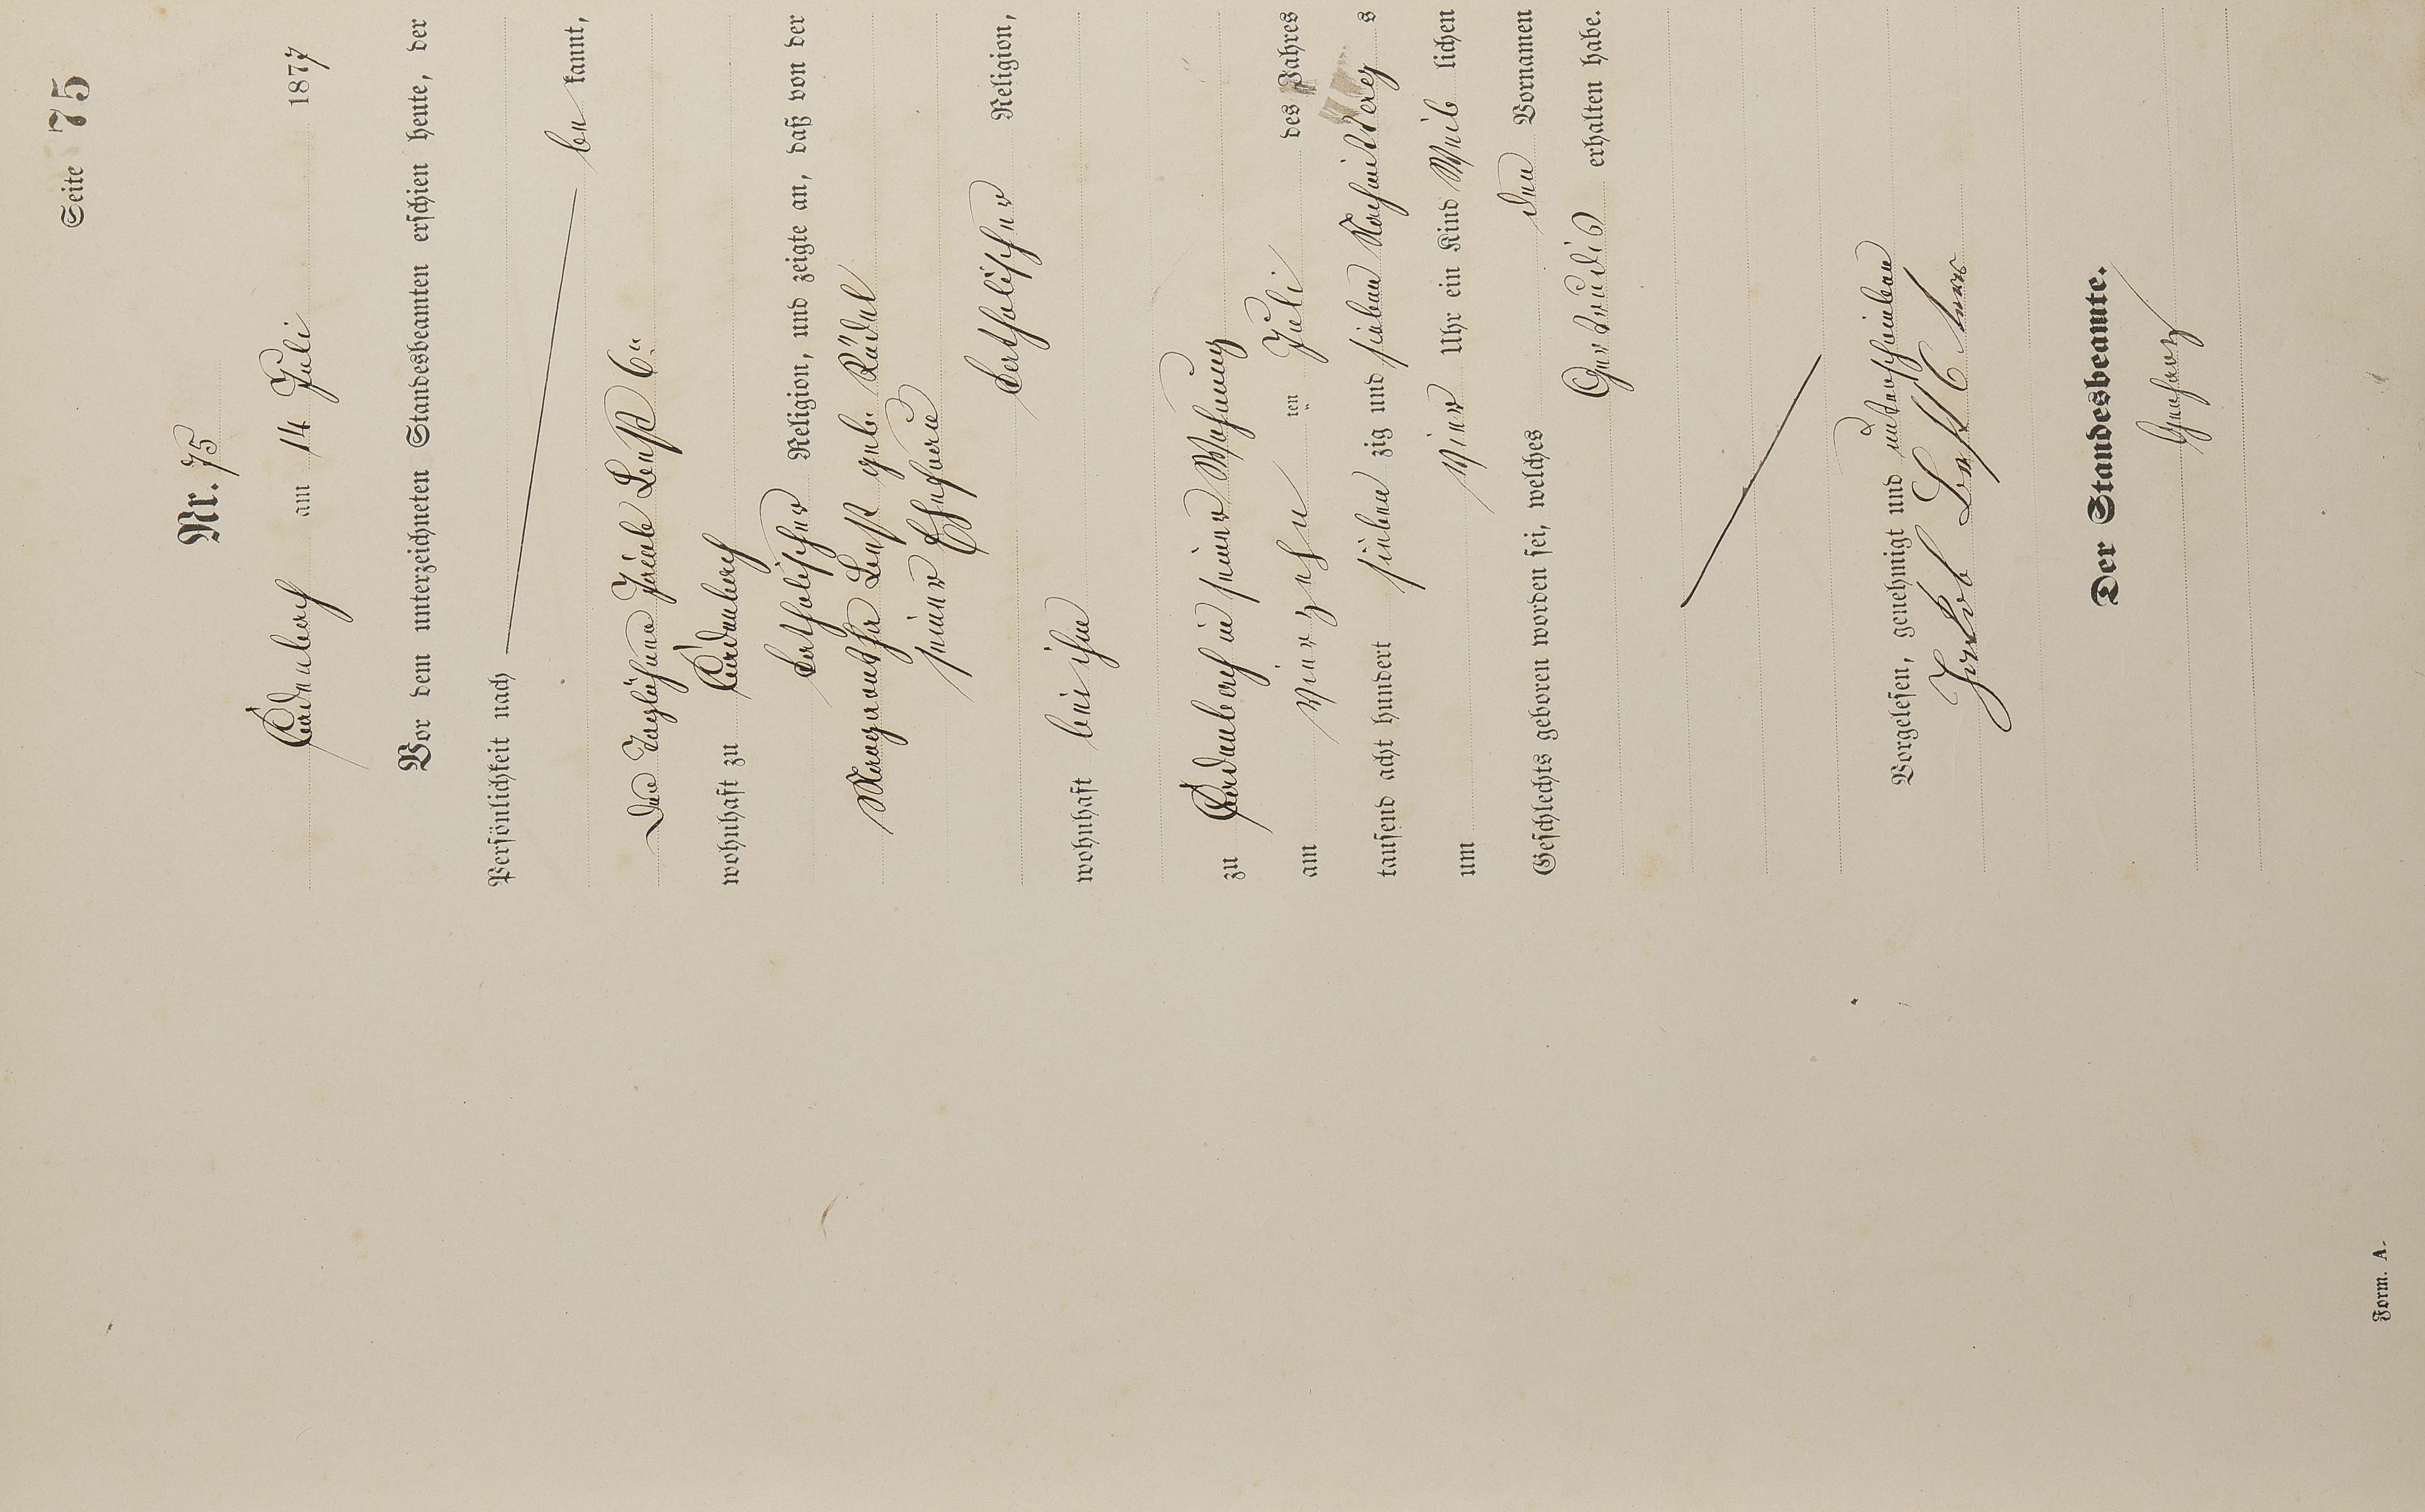 Seite 75
Nr. 75
Hardenbach am 14 Juli 1877
Vor dem unterzeichneten Standesbeamten erschien heute, der
Persönlichkeit nach
be kannt,
der Taglöhner Jacob Lenst 6r
wohnhaft zu
katholischer Religion, und zeigte an, daß von der
Margaretha geb. Rüdel
seiner Ehefrau
katholischer Religion,
wohnhaft bei ihm
zu in seiner Wohnung
am vierzehn ten Juli des Jahres
tausend acht hundert sieben zig und sieben Nachmittags
um vier Uhr ein Kind weib lichen
Geschlechts geboren worden sei, welches den Vornamen
Gertrudis erhalten habe.
Vorgelesen, genehmigt und unterschrieben
Jackob
Der Standesbeamte.
Form. A.